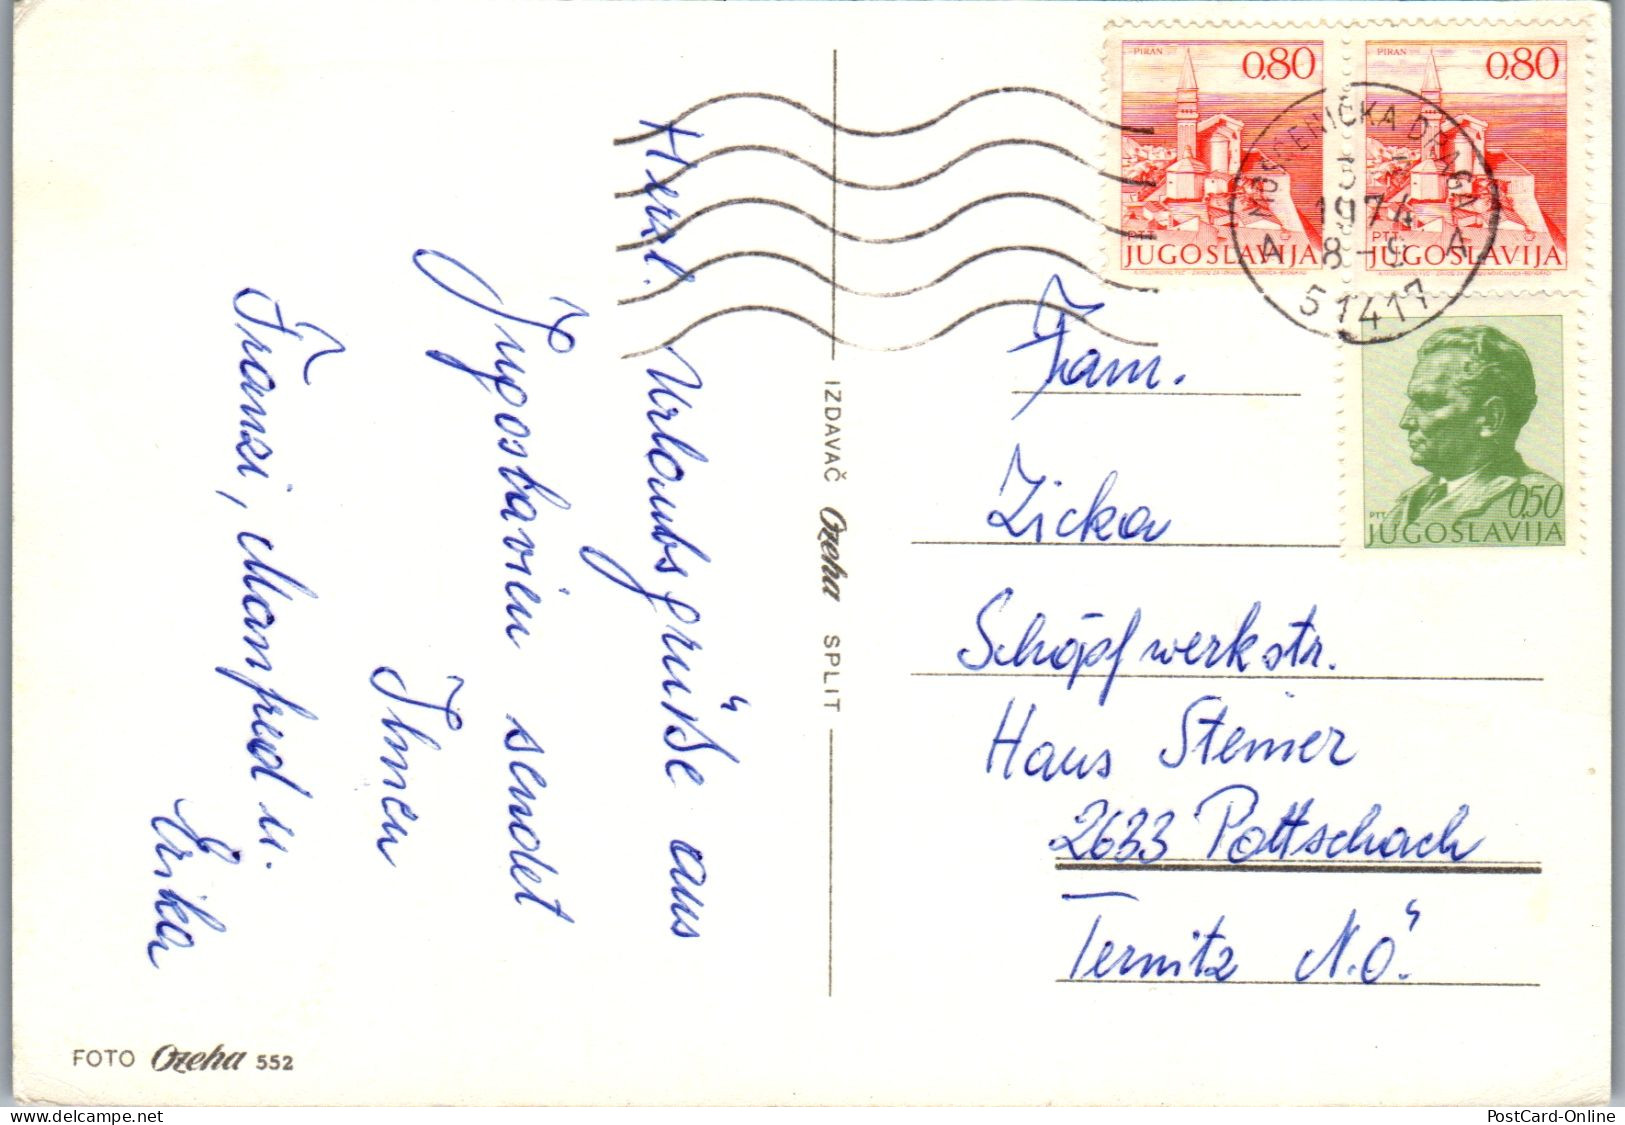 Herzl. Urlaubsgrüße aus
Jugoslavien sendet
Ihnen
Franzi, Manfred u.
Erika
FOTO Ozeha 552
IZDAVAČ Ozeha SPLIT
PIRAN 0,80
PTT
JUGOSLAVIJA
PIRAN 0,80
PTT
JUGOSLAVIJA
MOŠĆENIČKA DRAGA
1974
8-9
A A
51417
0,50
PTT
JUGOSLAVIJA
Fam.
Zicka
Schöpfwerkstr.
Haus Steiner
2633 Pottschach
Ternitz N.Ö.
delcampe.net
PostCard-Online